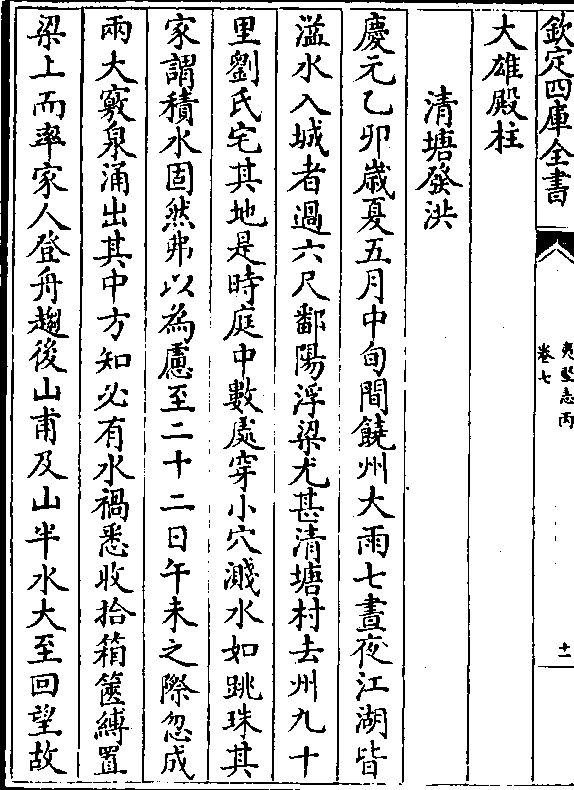 欽定四庫全書
夷堅志丙
卷七
十一
大雄殿柱
清塘發洪
慶元乙卯歲夏五月中旬間饒州大雨七晝夜江湖皆
溢水入城者過六尺鄱陽浮梁尤甚清塘村去州九十
里劉氏宅其地是時庭中數處穿小穴濺水如跳珠其
家謂積水固然弗以為慮至二十二日午未之際忽成
兩大竅泉涌出其中方知必有水禍悉收拾箱篋縛置
梁上而率家人登舟趨後山甫及山半水大至回望故